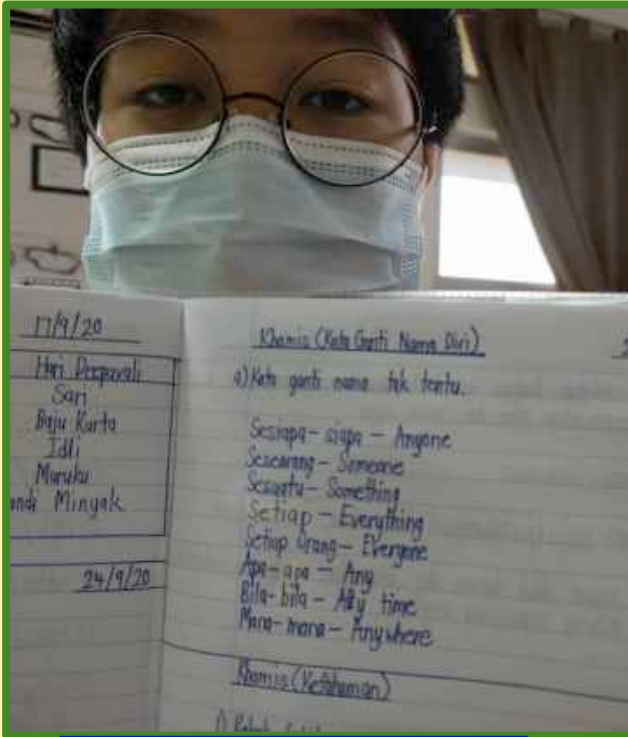 17/9/20
Hari Deepavali
Sari
Baju Kurta
Idli
Muruku
andi Minyak
24/9/20
Khamis (Kata Ganti Nama Diri)
a) Kata ganti nama tak tentu.
Sesiapa - siapa - Anyone
Seseorang - Someone
Sesuatu - Something
Setiap - Everything
Setiap Orang - Everyone
Apa-apa - Any
Bila-bila - Any time
Mana-mana - Anywhere
Khamis (Kefahaman)